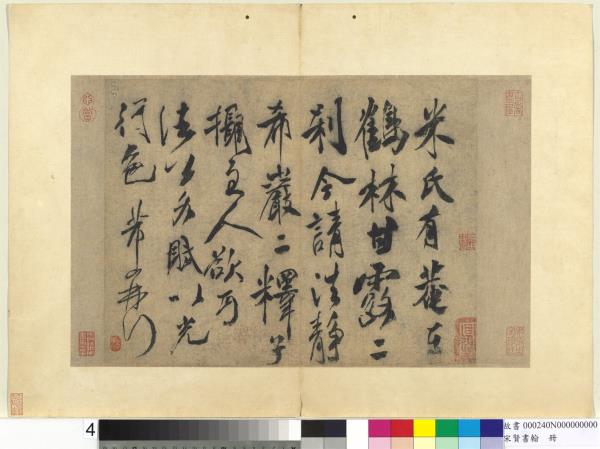 米氏有菴在
鶴林甘露二
刹今請法靜
希巖二釋子
攝主人欲丐
諸公各賦以光
行色 芾再拜
4
故書 000240N000000000
宋賢書翰 冊